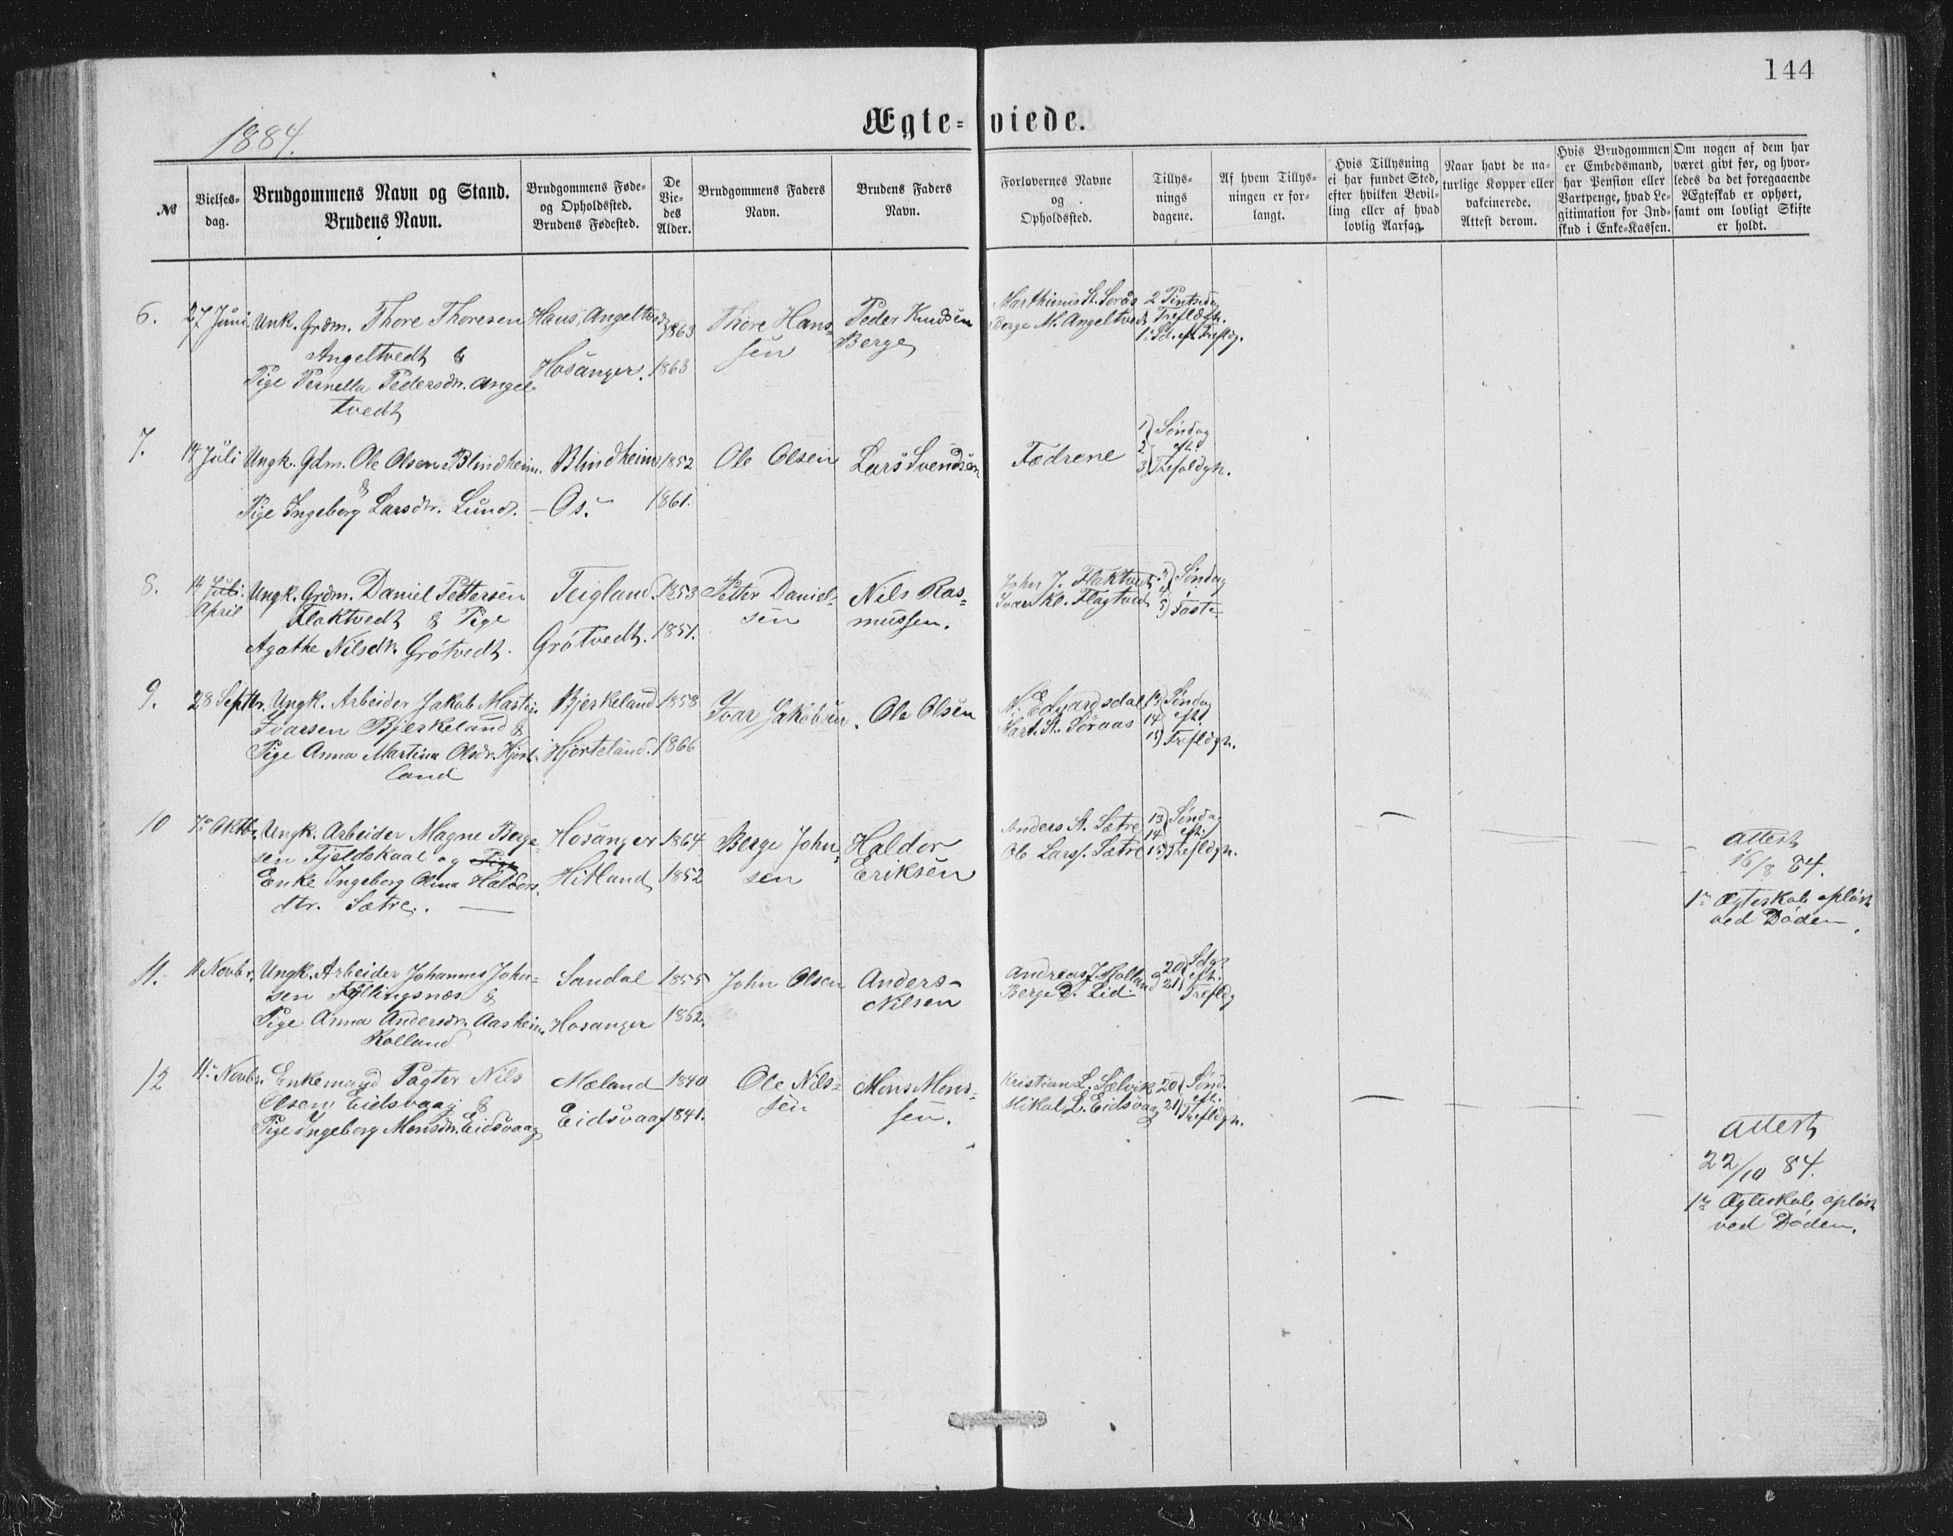 144
1884.
Ægte-viede.
№
Vielses-
dag.
Brudgommens Navn og Stand.
Brudens Navn.
Brudgommens Føde-
og Opholdssted.
Brudens Fødested.
De
Vie-
des
Alder.
Brudgommens Faders
Navn.
Brudens Faders
Navn.
Forlovernes Navne
og
Opholdssted.
Tillys-
nings
dagene.
Af hvem Tillys-
ningen er for-
langt.
Hvis Tillysning
ei har fundet Sted,
efter hvilken Bevil-
ling eller af hvad
lovlig Aarsag.
Naar havt de na-
turlige Kopper eller
vakcinerede.
Attest derom.
Hvis Brudgommen
er Embedsmand,
har Pension eller
Vartpenge, hvad Le-
gitimation for Ind-
skud i Enke-Kassen.
Om nogen af dem har
været givt før, og hvor-
ledes da det foregaaende
Ægteskab er ophørt,
samt om lovligt Skifte
er holdt.
6. 27 Juni Unk. Grdm. Thore Thoresen
Angeltvedt &
Pige Pernella Pedersdr. Angel-
tvedt
Haus, Angeltvedt 1863
Hosanger. 1863
Thore Hans-
sen
Peder Knudsen
Berge
Marthinus St. Sørås
Berge M. Angeltvedt
2 Pintsedag
Trefldgh.
1. Sd. eft. Trefldg.
7. 14 Juli Ungk. Gdm. Ole Olsen Blindheim.
&
Pige Ingeborg Larsdtr. Lund.
Blindheim 1852
- Os. - 1861.
Ole Olsen
Lars Svendsen
Fædrene
1) Søndag
2 eft.
3) Trefoldgh.
8. 14 Juli
April
Ungk. Grdm. Daniel Pettersen
Flaktvedt & Pige
Agathe Nilsdr. Grøtvedt.
Teigland. 1853
Grøtvedt. 1851.
Petter Daniel-
sen
Nils Ras-
mussen.
John J. Flaktvedt
Ivar Kl. Flagtvedt
3) Søndag
4 i
5) Faste
9. 28 Septbr. Ungk. Arbeider Jakob Martin
Ivarsen Bjerkeland &
Pige Anna Martina Olsdr. Hjort-
land
Bjerkeland 1858
Hjorteland. 1866
Ivar Jakobsen.
Ole Olsen
N. Edvardsdal
Mart. St. Søraas
13) Søndag
14 eft.
15) Trefldgh.
10 7de Oktbr. Ungk. Arbeider Magne Berge-
sen Fjeldskaal og Pige
Enke Ingeborg Olina Haldors-
dtr. Sætre.
Hosanger 1864
Hitland 1852
Berge John-
sen
Haldor
Eriksen
Anders A. Sætre
Ole Larss. Sætre
13) Søndag
14 eft.
15) Trefldgh.
attest
16/8 84.
1ste Ægteskab opløst
ved Døden.
11. 11 Novbr. Ungk. Arbeider Johannes John-
sen Fyllingsnæs &
Pige Anna Andersdr. Aasheim
Kolland
Sandal 1855
Hosanger 1862.
John Olsen
Anders
Nilsen
Andreas J. Kolland
Berge D. Lid.
20) Sdg.
eft.
21) Trefldg
12 11. Novbr. Enkemand Pagter Nils
Olsen Eidsvaag &
Pige Ingeborg Monsdr. Eidsvaag
Mæland 1840
Eidsvaag 1841.
Ole Nils-
sen
Mons Mons-
sen.
Kristian L. Sælvik
Mikal L. Eidsvaag
20) Sønd.
eft.
21) Trefldgh.
attest
22/10 84.
1ste Ægteskab opløst
ved Døden.